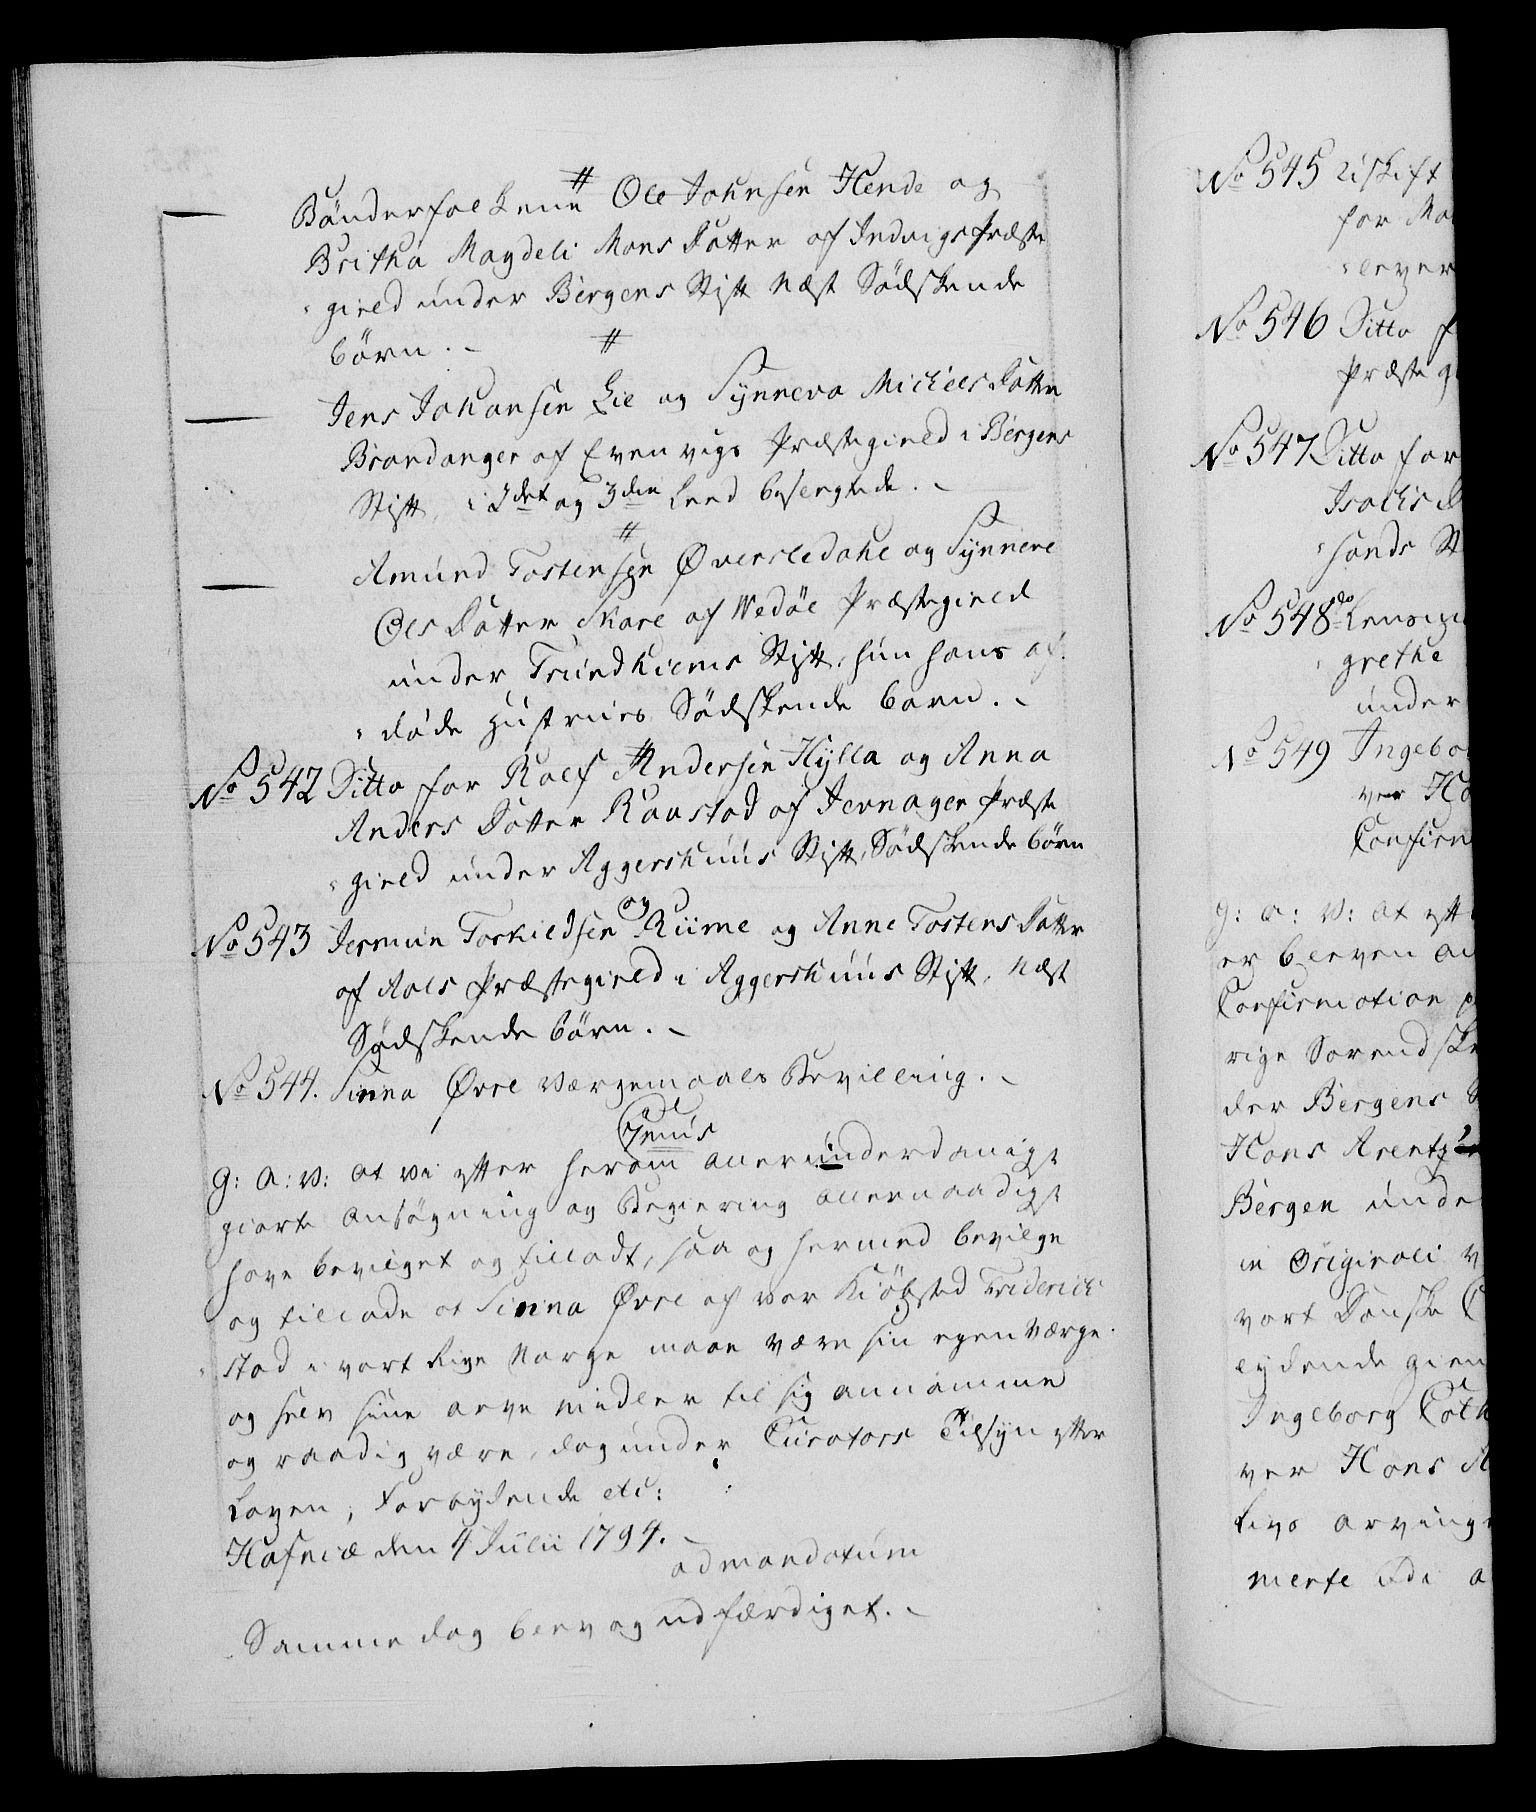 #
Bönderfolkene Ole Johnsen Hende og
Britha Magdeli Mons Datter af Indvigs Præste
gield under Bergens Stift Næst Södskende
börn. -
#
Jens Johansen Lie og Synneva Michels Datter
Brandanger af Evenvigs Præstegield i Bergens
Stift, i 2det og 3die Leed besvogrede. -
#
Amund Tostensen Øversledahl og Synneve
Ols Datter Skare af Wedöe Præstegield
under Trundhiems Stift, hun hans af
döde Hustrues Södskende barn. -
No 542 Ditto for Rolf Andersen Hylla og Anna
Anders Datter Raastad af Jevnager Præste
gield under Aggershuus Stift, Södskende börn
No 543 Jermun Torkildsen Riime og Anne Tostens Datter
af Aals Præstegield i Aggershuus Stift, Næst
Södskende börn. -
No 544. Sinna Øvre Værgemaals Bevilling. -
C 7mus
G: A: V: at vi efter herom allerunderdanigst
giorte Ansögning og Begiering allernaadigst
have bevilget og tilladt, saa og hermed bevilge
og tillade at Sinna Øvre af vor Kiöbsted Friderich
stad i vort Rige Norge maae være sin egen Værge
og selv sine arve midler til sig annamme
og raadig være, dog under Curators Tilsyn efter
Loven; Forbydende etc:
Hafniæ den 4 Julii 1794. -
ad mandatum
Samme dag blev og udfærdiget. -
No 545 Uskift
for Ma
lever
No 546 Ditto f
Præste g
No 547 Ditto for
Isachs D
sands St
No 548 do
grethe
under
No 549 Ingebo
ver Ha
Confirm
G: A: V: at eft
er bleven an
Confirmation p
rige Sorendske
der Bergens S
Hans Arentz
Bergen unde
in Originali v
vort Danske C
lydende gien
Ingeborg Cath
ver Hans A
Livs arving
mente Ide a